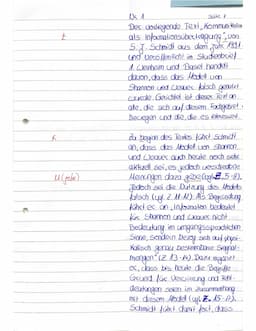 LK 1 Seite 1
Der vorliegende Text „Kommunikation
als Informationsübertragung“, von
S. J. Schmidt aus dem Jahr 1991
und veröffentlicht im Studienbrief
1 Weinheim und Basel handelt
davon, dass das Modell von
Shannon und Weaver falsch
wurde. Gerichtet ist dieser Text an
alle, die sich auf diesem Fachgebiet
Bewegen und die, die es interessiert.
Zu Beginn des Textes führt Schmidt
an, dass das Modell von Shannon
und Weaver auch heute noch sehr
aktuell sei, es jedoch verschiedene
Meinungen dazu gebe (vgl. Z. 5-8).
Jedoch sei die Nutzung des Modells
falsch (vgl. Z. 11-12). Als Begründung
führt er an, „Information bedeutet
für Shannon und Weaver nicht
Bedeutung im umgangssprachlichen
Sinne, sondern bezog sich auf physi-
kalisch genau bestimmbare Signal-
mengen“ (Z. 13-14). Dann ergänzt
er, dass bis heute die Begriffe
Grund für Verwirrung und Fehl-
deutungen seien im Zusammenhang
mit diesem Modell (vgl. Z. 15-17).
Schmidt führt damit fort, dass